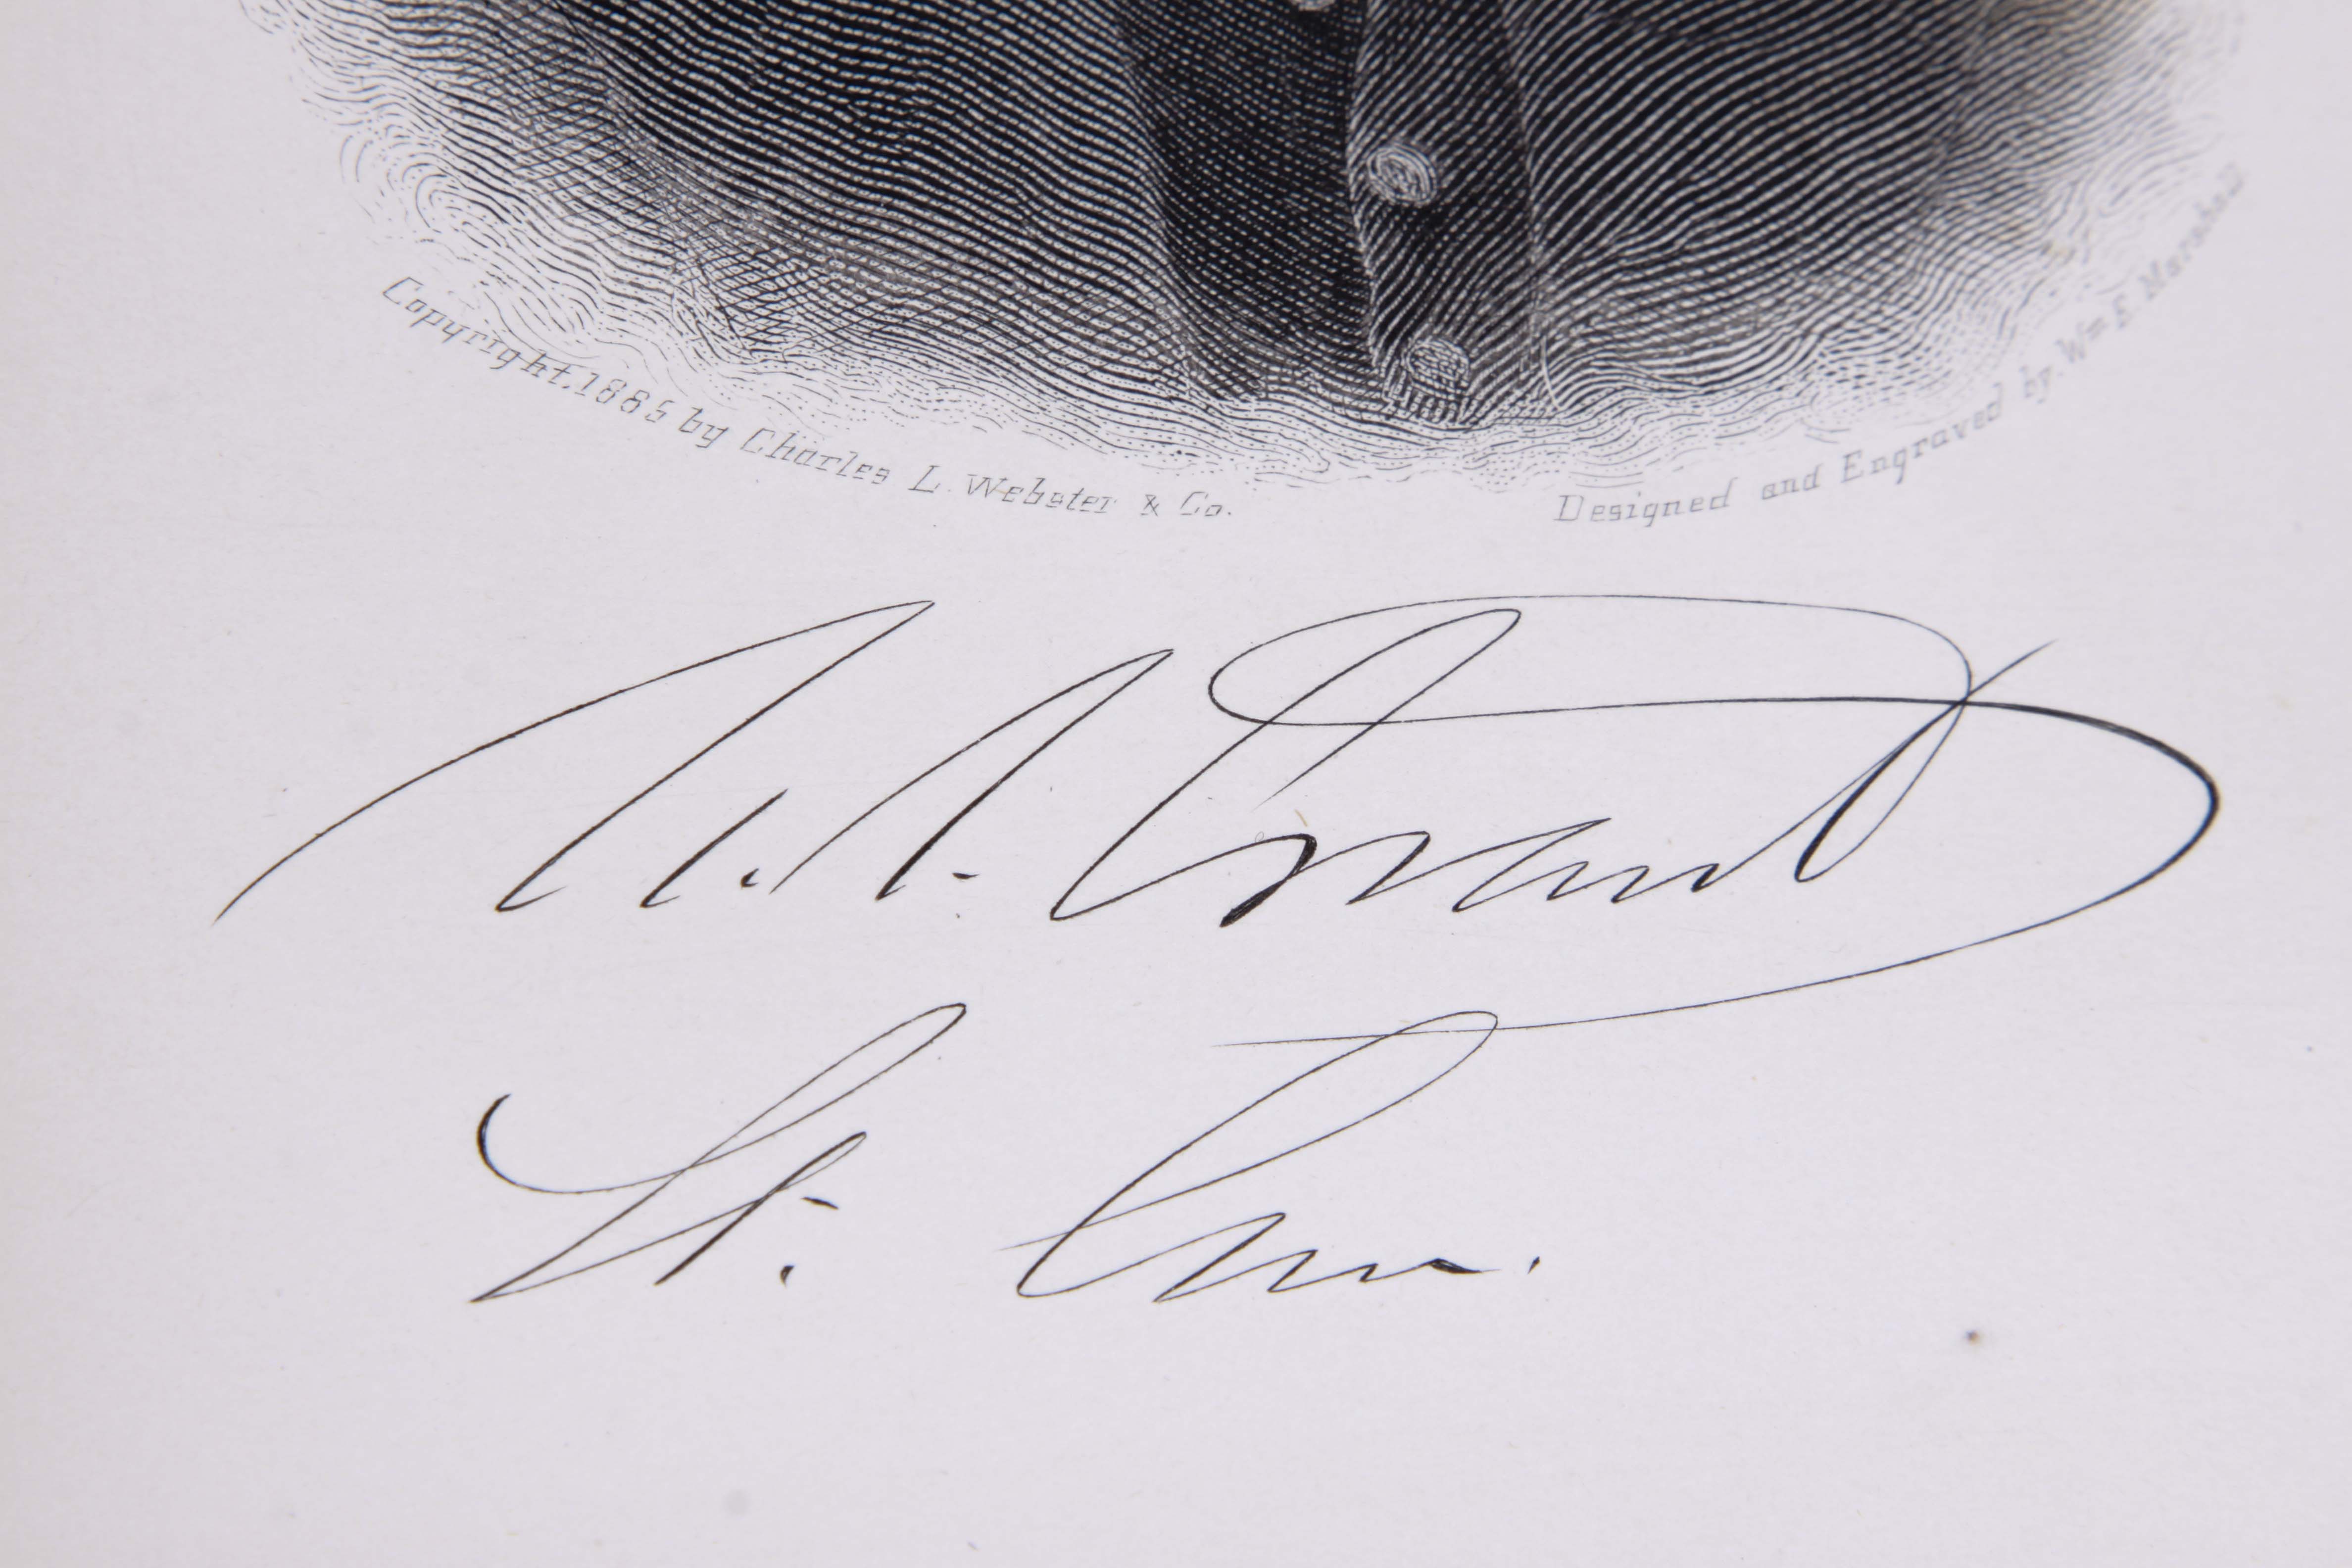 Copyright, 1885 by Charles L. Webster & Co.
Designed and Engraved by Wm. E. Marshall
U. S. Grant
Lt. Gen.